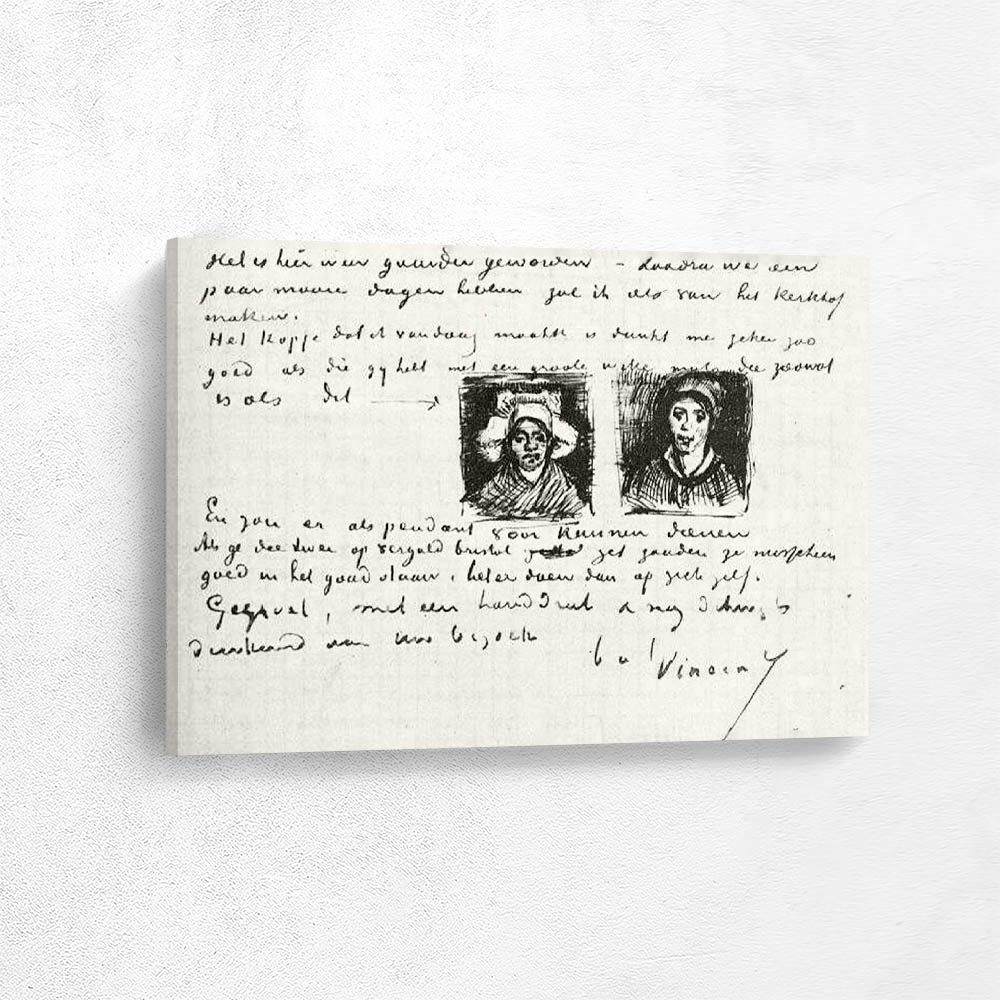 Het is hier weer guurder geworden – Zoodra we een
paar mooie dagen hebben zal ik iets van het Kerkhof
maken.
Het kopje dat ik vandaag maakte is dunkt me zeker zoo
goed als die gy hebt met een groote witte muts die zoowat
is als dit
En zou er als pendant voor kunnen dienen
Als ge die twee op verguld bristol zet zouden ze misschien
goed in het goud staan, beter doen dan op zich zelf.
Gegroet, met een handdruk & nog
dankend van Uw bezoek
Vincent